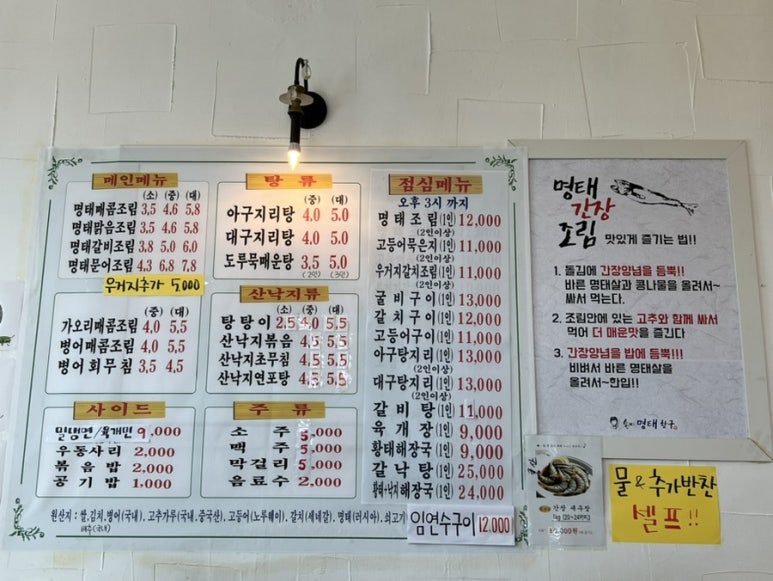 메인메뉴
(소) (중) (대)
명태매콤조림 3,5 4.6 5.8
명태맑음조림 3,5 4.6 5.8
명태갈비조림 3.8 5.0 6.0
명태문어조림 4.3 6.8 7.8
우거지추가 5,000
(중) (대)
가오리매콤조림 4,0 5,5
병어매콤조림 4.0 5.5
병어회무침 3,5 4,5
사이드
밀냉면/육개면 9,000
우동사리 2,000
볶음밥 2,000
공기밥 1,000
탕 류
(중) (대)
아구지리탕 4.0 5.0
대구지리탕 4.0 5.0
도루묵매운탕 3,5 5.0
(2인) (3인)
산낙지류
(소) (중) (대)
탕탕이 2,5 4,0 5,5
산낙지볶음 4,5 5,5
산낙지초무침 4,5 5,5
산낙지연포탕 4,5 5,5
주 류
소 주 5,000
맥 주 5,000
막걸리 5,000
음료수 2,000
점심메뉴
오후 3시 까지
명태조림(1인) 12,000
(2인이상)
고등어묵은지(1인) 11,000
(2인이상)
우거지갈치조림(1인) 11,000
(2인이상)
굴비구이(1인) 13,000
갈치구이(1인) 12,000
고등어구이(1인) 11,000
아구탕지리(1인) 13,000
(2인이상)
대구탕지리(1인) 13,000
(2인이상)
갈비탕(1인) 11,000
육개장(1인) 9,000
황태해장국(1인) 9,000
갈낙탕(1인) 25,000
황태+낙지해장국(1인) 24,000
원산지 : 쌀,김치,병어(국내), 고추가루(국내,중국산), 고등어(노루웨이), 갈치(세네갈), 명태(러시아), 쇠고기
배추(국내)
임연수구이 12,000
명태
간장
조림 맛있게 즐기는 법!!
1. 돌김에 간장양념을 듬뿍!!
바른 명태살과 콩나물을 올려서~
싸서 먹는다.
2. 조림안에 있는 고추와 함께 싸서
먹어 더 매운맛을 즐긴다
3. 간장양념을 밥에 듬뿍!!!
비벼서 바른 명태살을
올려서~한입!!
명태
간장 새우장
물 & 추가반찬
셀프!!